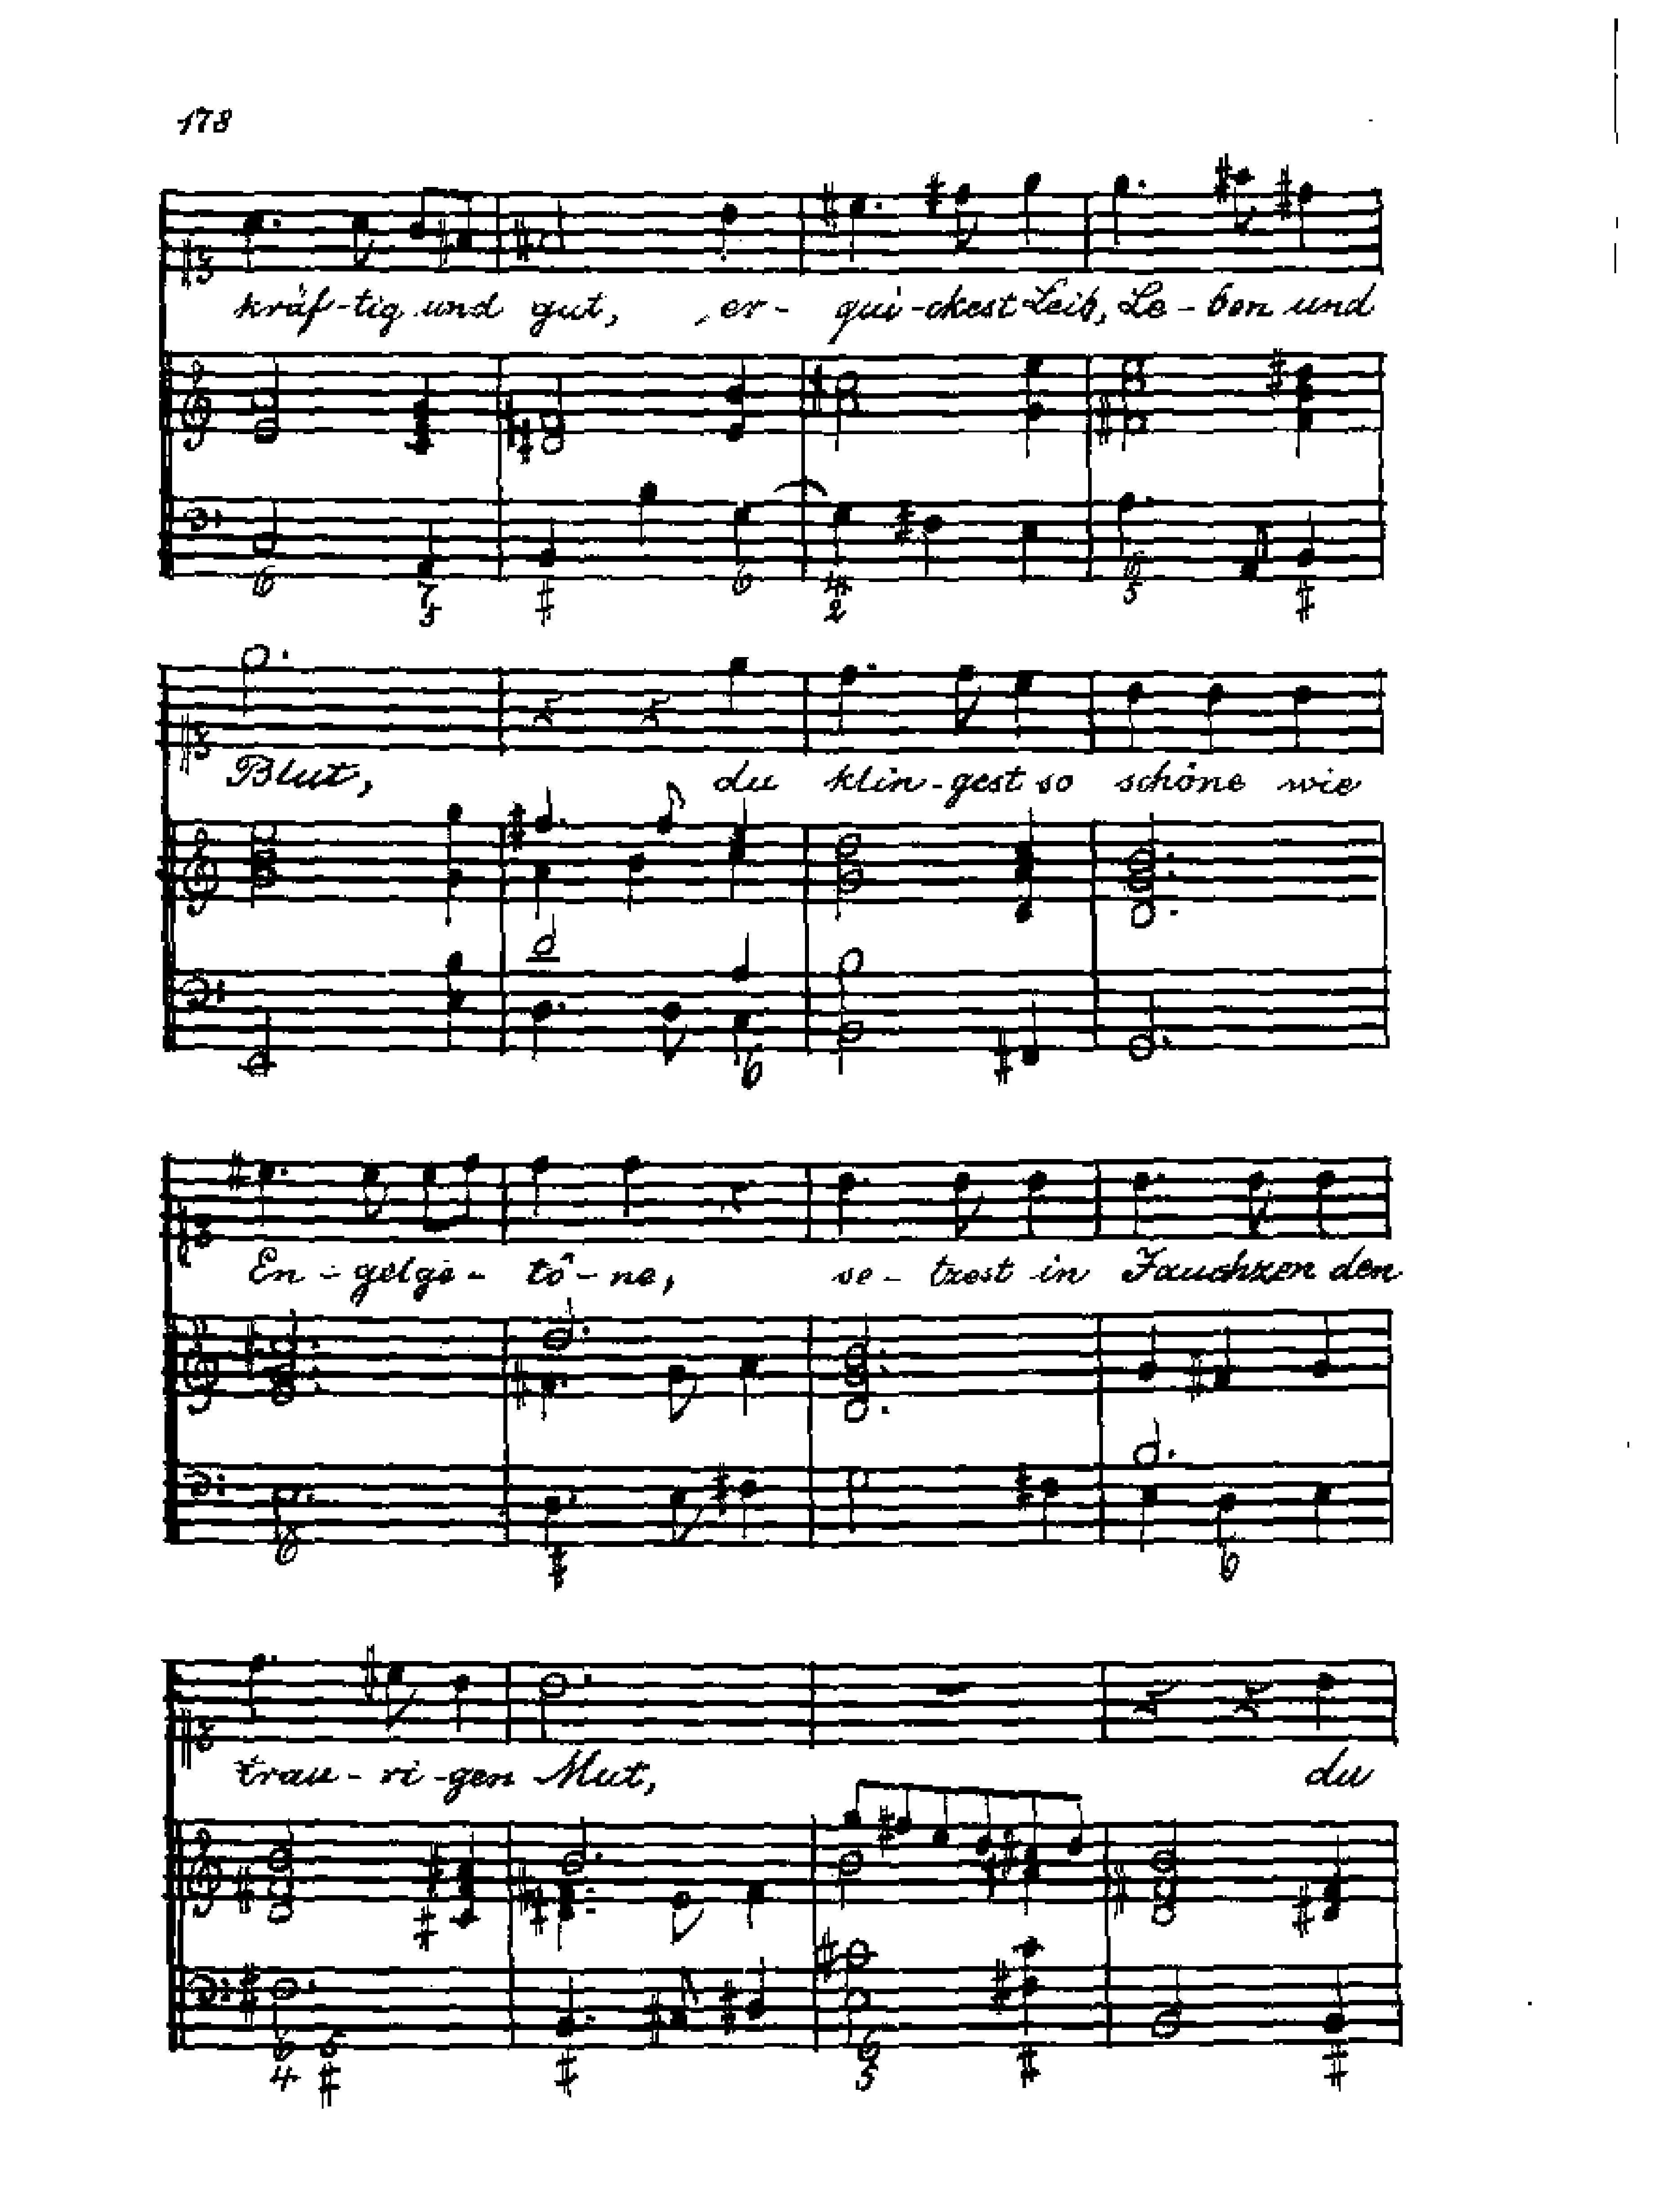 178
kräf-tig und gut, er- qui-ckest Leib, Le-ben und
6 7 5 # 6 4 2 6 5 #
Blut, du klin-gest so schöne wie
6
En-gelge-tö-ne, se-tzest in Jauchzen den
6 # 6
trau-ri-gen Mut, du
6 4 5 # # 6 5 # #